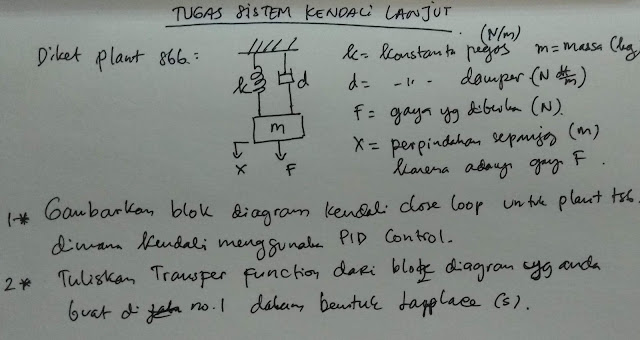 TUGAS SISTEM KENDALI LANJUT
Diket plant sbb. :
k = konstanta pegas (N/m) m = massa (kg
d = -"- damper (N dt/m)
F = gaya yg diberikan (N).
X = perpindahan sepanjang (m)
karena adanya gaya F.
k d
m
X F
1-* Gambarkan blok diagram kendali close loop untuk plant tsb.
dimana kendali menggunakan PID Control.
2 * Tuliskan Transfer function dari blok diagram yg anda
buat di no. 1 dalam bentuk lapplace (s).